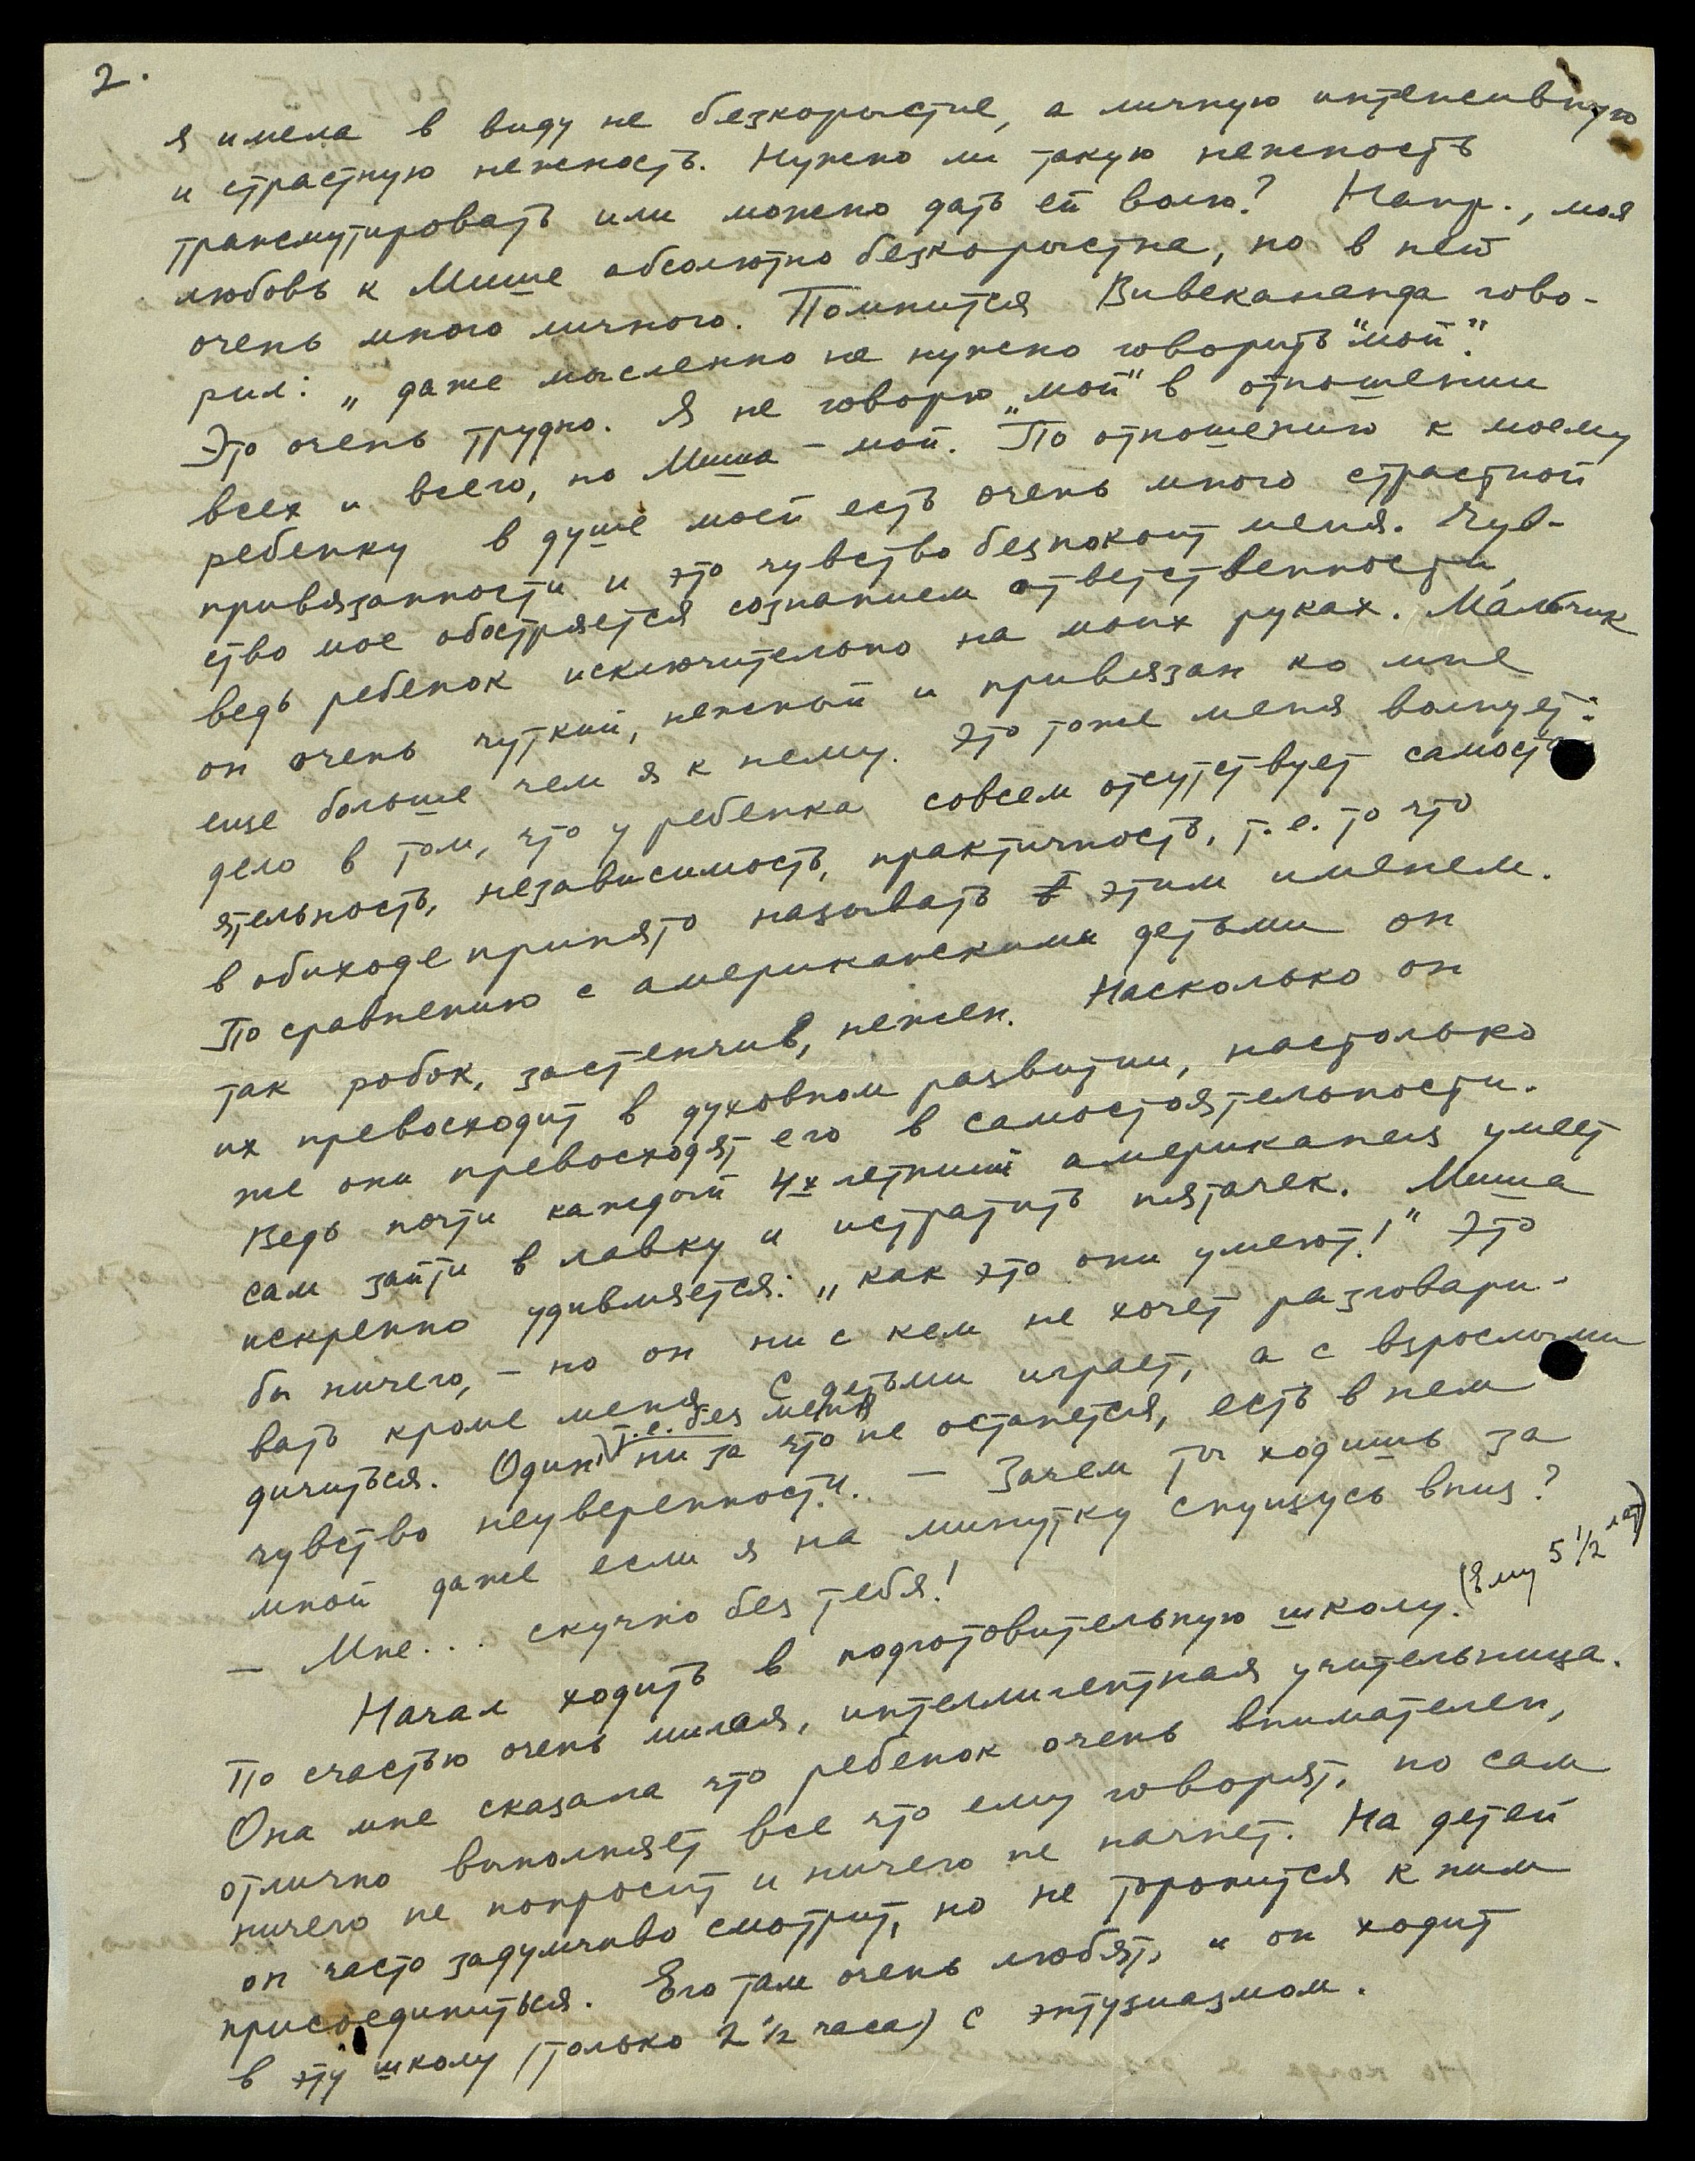 2.
я имела в виду не безкорыстие, а личную интенсивную
и страстную нежность. Нужно ли такую нежность
трансмутировать или можно дать ей волю? Напр., моя
любовь к Мише абсолютно безкорыстна, но в ней
очень много личного. Помнится Вивекананда гово-
рил: „даже мысленно не нужно говорить "мой".
Это очень трудно. Я не говорю „мой" в отношении
всех и всего, но Миша – мой. По отношению к моему
ребенку в душе моей есть очень много страстной
привязанности и это чувство безпокоит меня. Чув-
ство мое обостряется сознанием ответственности,
ведь ребенок исключительно на моих руках. Мальчик
он очень чуткий, нежный и привязан ко мне
еще больше чем я к нему. Это тоже меня волнует:
дело в том, что у ребенка совсем отсутствует самосто-
ятельность, независимость, практичность, т.е. то что
в обиходе принято называть этим именем.
По сравнению с американскими детьми он
так робок, застенчив, нежен. Насколько он
их превосходит в духовном развитии, настолько
же они превосходят его в самостоятельности.
Ведь почти каждый 4х летний американец умеет
сам зайти в лавку и истратить пятачек. Миша
искренно удивляется: „как это они умеют!" Это
бы ничего, – но он ни с кем не хочет разговари-
вать кроме меня. С детьми играет, а с взрослыми
дичиться. Один, т.е. без меня ни за что не останется, есть в нем
чувство неуверенности. – Зачем ты ходишь за
мной даже если я на минутку спущусь вниз?
– Мне... скучно без тебя!
Начал ходить в подготовительную школу. (Ему 5 1/2 лет)
По счастью очень милая, интеллигентная учительница.
Она мне сказала что ребенок очень внимателен,
отлично выполняет все что ему говорят, но сам
ничего не попросит и ничего не начнет. На детей
он часто задумчиво смотрит, но не торопится к ним
присоединиться. Его там очень любят, и он ходит
в эту школу (только 2 1/2 часа) с энтузиазмом.